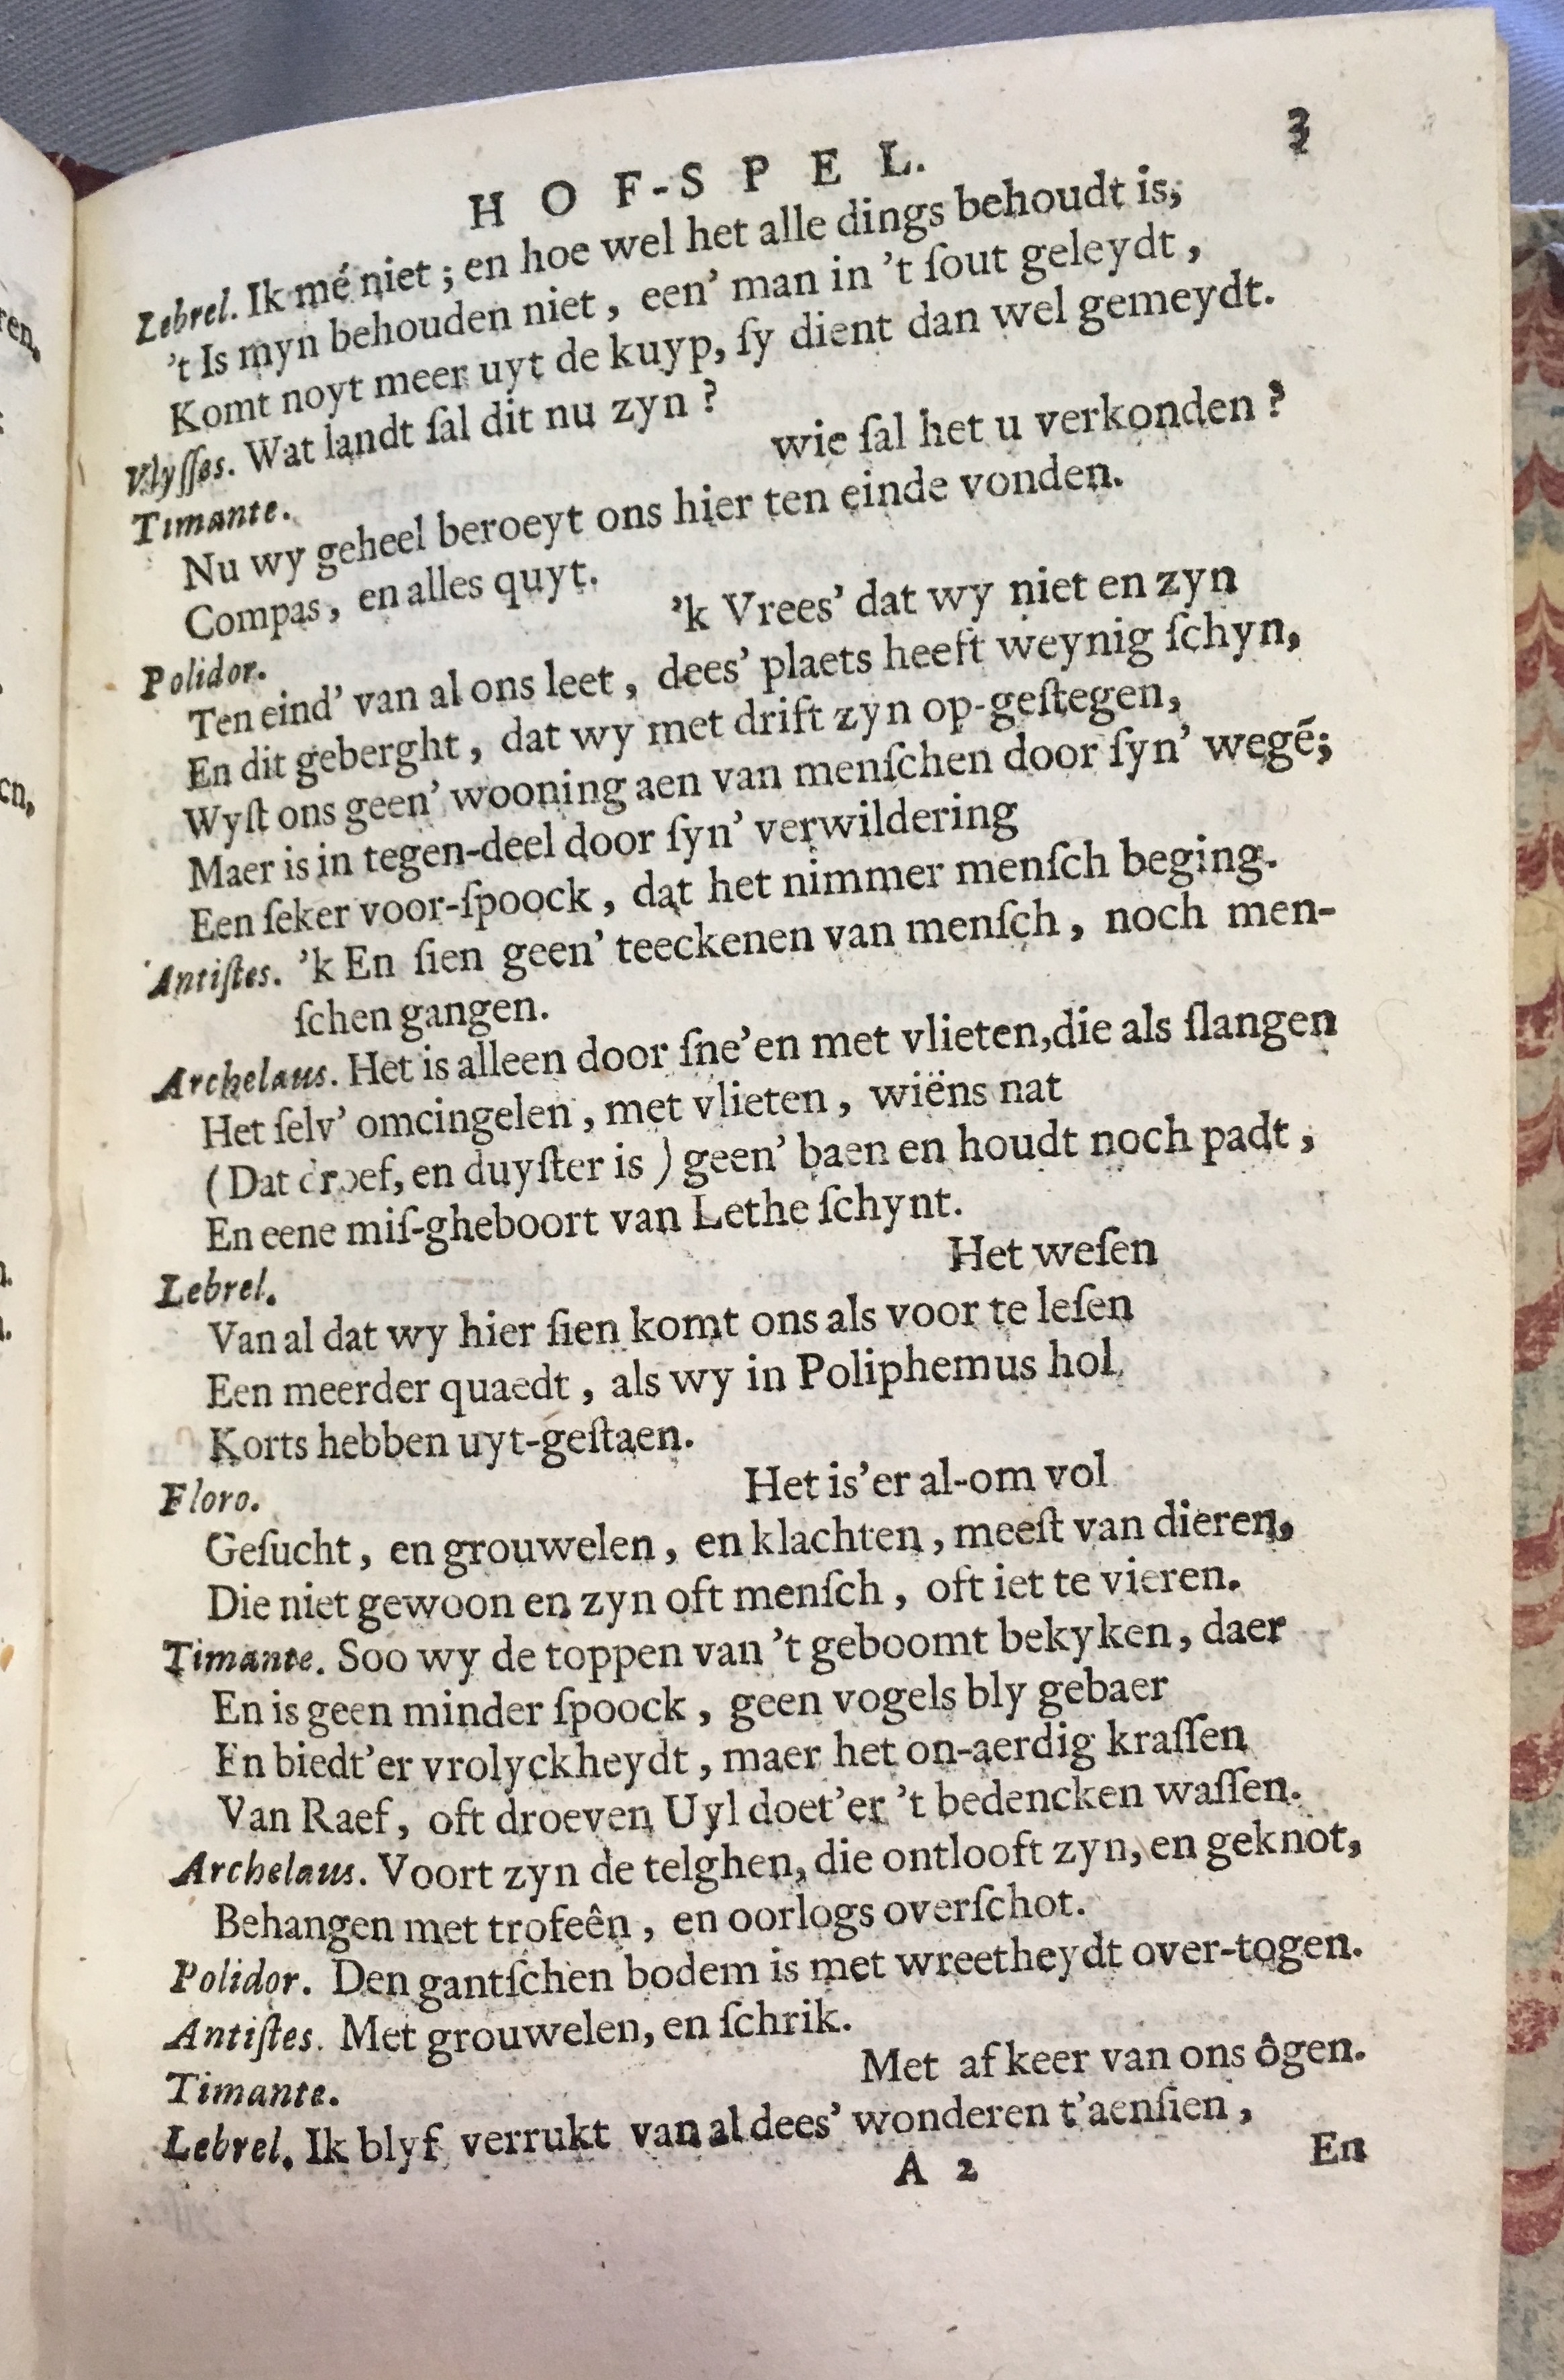 HOF-SPEL. 3
Lebrel. Ik mé niet ; en hoe wel het alle dings behoudt is,
't Is myn behouden niet , een' man in 't ſout geleydt ,
Komt noyt meer uyt de kuyp, ſy dient dan wel gemeydt.
Vlyſſes. Wat landt ſal dit nu zyn ?
Timante. wie ſal het u verkonden ?
Nu wy geheel beroeyt ons hier ten einde vonden.
Compas , en alles quyt.
Polidor. 'k Vrees' dat wy niet en zyn
Ten eind' van al ons leet , dees' plaets heeft weynig ſchyn,
En dit geberght , dat wy met drift zyn op-geſtegen,
Wyſt ons geen' wooning aen van menſchen door ſyn' wegẽ;
Maer is in tegen-deel door ſyn' verwildering
Een ſeker voor-ſpoock , dat het nimmer menſch beging.
Antiſtes. 'k En ſien geen' teeckenen van menſch , noch men-
ſchen gangen.
Archelaus. Het is alleen door ſne'en met vlieten,die als ſlangen
Het ſelv' omcingelen , met vlieten , wiëns nat
(Dat droef, en duyſter is ) geen' baen en houdt noch padt ,
En eene miſ-gheboort van Lethe ſchynt.
Lebrel. Het weſen
Van al dat wy hier ſien komt ons als voor te leſen
Een meerder quaedt , als wy in Poliphemus hol
Korts hebben uyt-geſtaen.
Floro. Het is'er al-om vol
Geſucht , en grouwelen , en klachten , meeſt van dieren,
Die niet gewoon en zyn oft menſch , oft iet te vieren.
Timante. Soo wy de toppen van 't geboomt bekyken, daer
En is geen minder ſpoock , geen vogels bly gebaer
En biedt'er vrolyckheydt , maer het on-aerdig kraſſen
Van Raef, oft droeven Uyl doet'er 't bedencken waſſen.
Archelaus. Voort zyn de telghen, die ontlooft zyn, en geknot,
Behangen met trofeên , en oorlogs overſchot.
Polidor. Den gantſchen bodem is met wreetheydt over-togen.
Antiſtes. Met grouwelen, en ſchrik.
Timante. Met afkeer van ons ôgen.
Lebrel. Ik blyf verrukt van al dees' wonderen t'aenſien ,
A 2 En